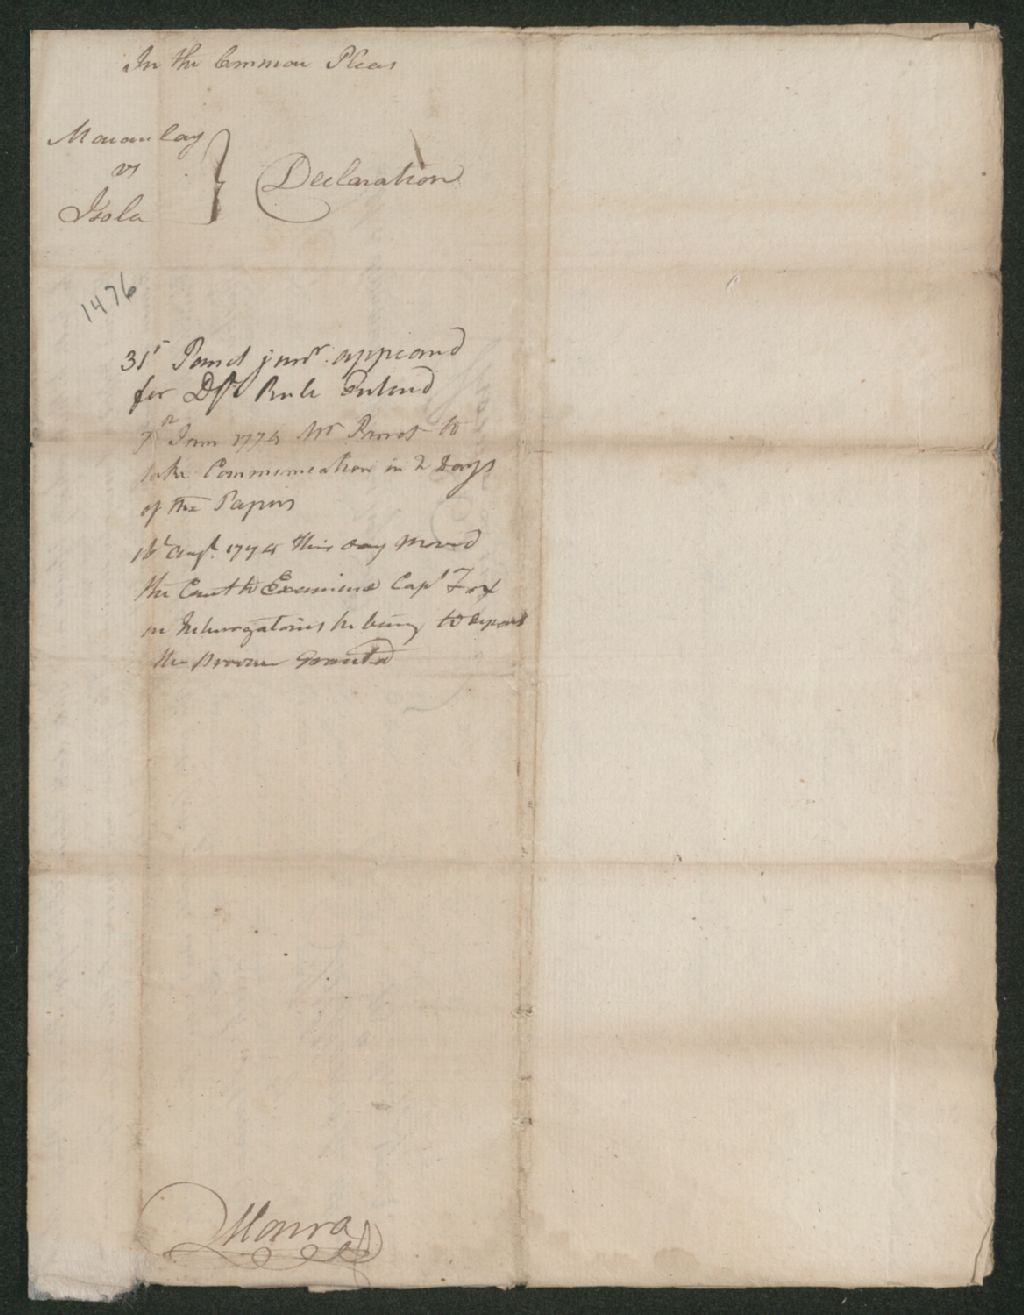 In the Common Pleas
Macaulay
vs
Isola
Declaration
1476
31st Panet junr. appeared
for Dft Rule Entered
7th June 1774 Mr Panet to
take Communication in 2 Days
of the Papers
16 Augt. 1774 this day moved
the Court to Examine Capt Fox
on Interrogatories he being to depart
the Province Granted
Monro